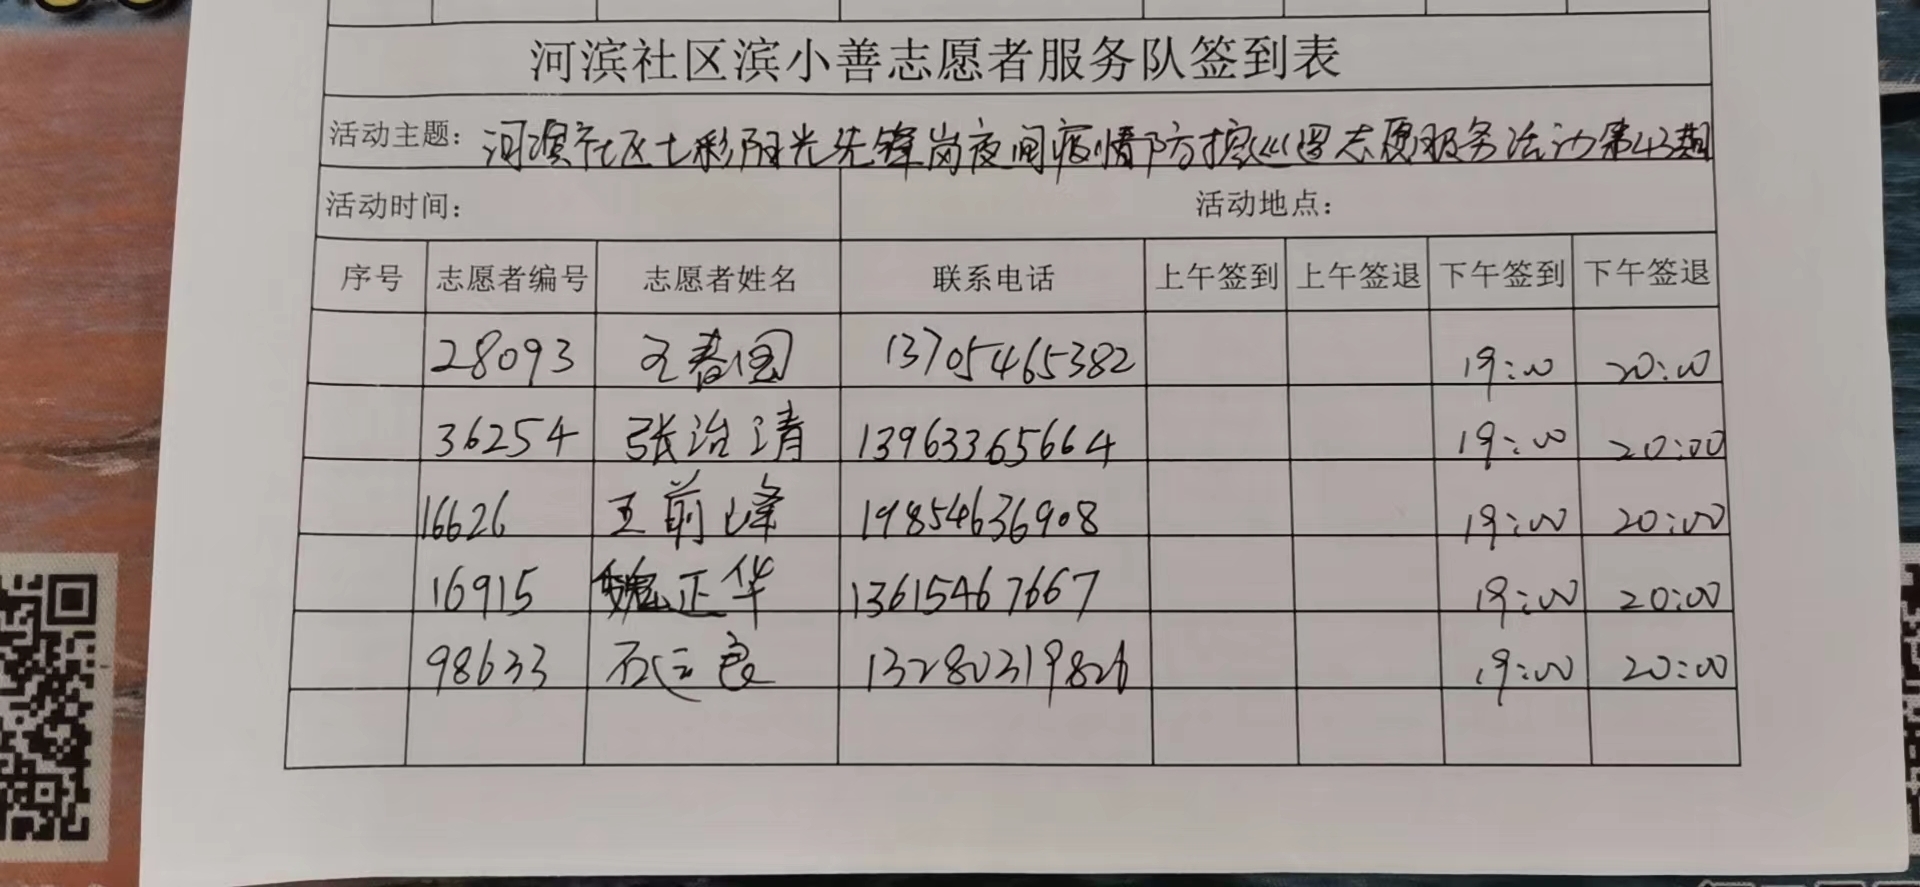 河滨社区滨小善志愿者服务队签到表
活动主题：河滨社区七彩阳光先锋岗夜间疫情防控巡逻志愿服务活动第43期
活动时间： 活动地点：
序号 志愿者编号 志愿者姓名 联系电话 上午签到 上午签退 下午签到 下午签退
28093 王春国 13705465382 19:00 20:00
36254 张治清 13963365664 19:00 20:00
16626 王前峰 19854636908 19:00 20:00
16915 魏正华 13615467667 19:00 20:00
98633 石运良 13280319826 19:00 20:00